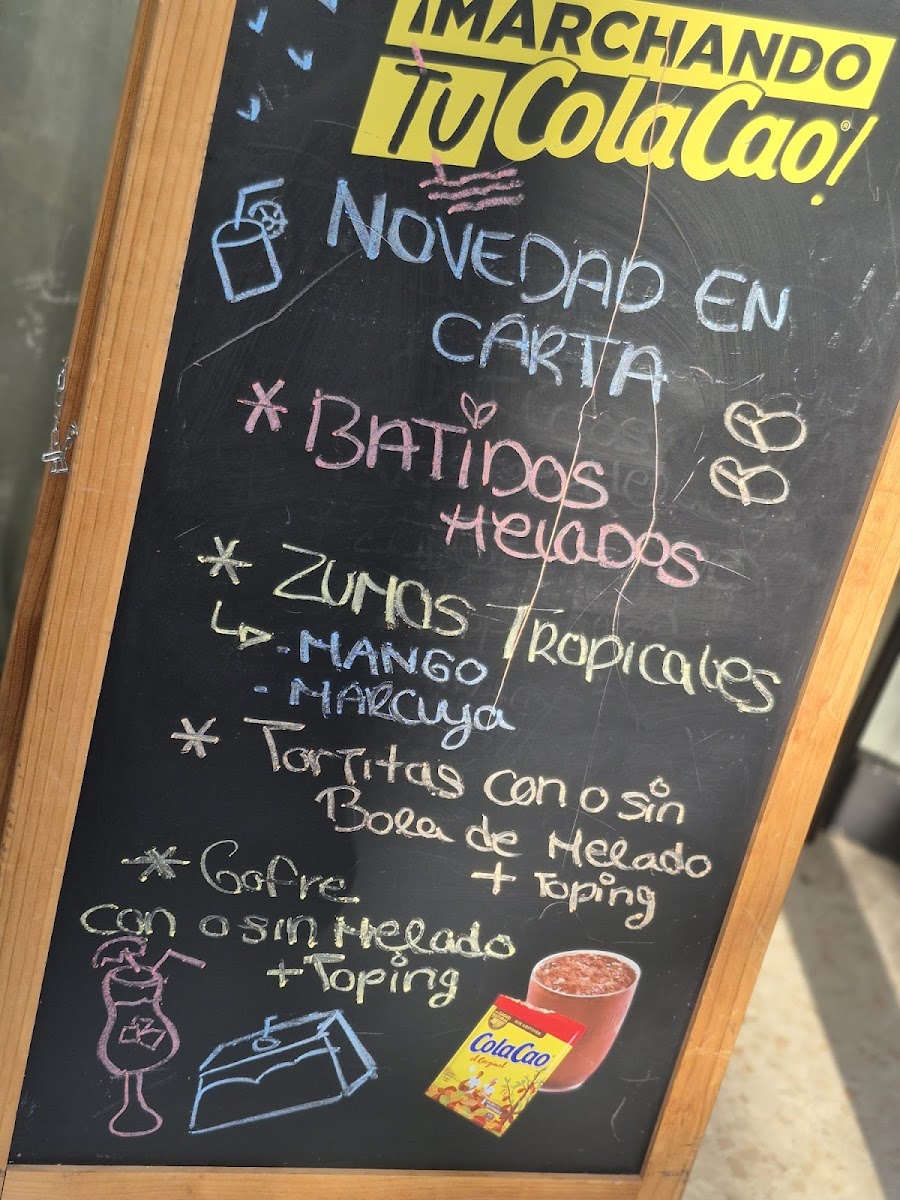 ¡MARCHANDO
TU ColaCao!
NOVEDAD EN
CARTA
* BATIDOS
HELADOS
* ZUMOS TROPICALES
- MANGO
- MARCUYA
* TORTITAS CON O SIN
BOLA DE HELADO
+ TOPING
* GOFRE
CON O SIN HELADO
+ TOPING
ColaCao